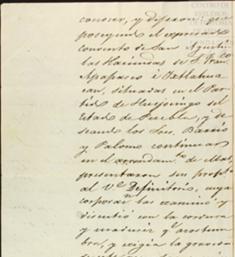 conocer, y dijeron: que
poseyendo el expresado
convento de San Agustin
las Haciendas de S. Fran.co
Apapasco è Ixtlahua
can, situadas en el Par
tido de Huejocingo del
Estado de Puebla, y de
seando los Sres. Barrio
y Palomo continuar
en el arrendam.to de ellas,
presentaron su
al V.e Definitorio, cuya
corporac.n las ecsaminó y
discutió con la cordura
y madurez q.e acostum
bra, y ecsigia la